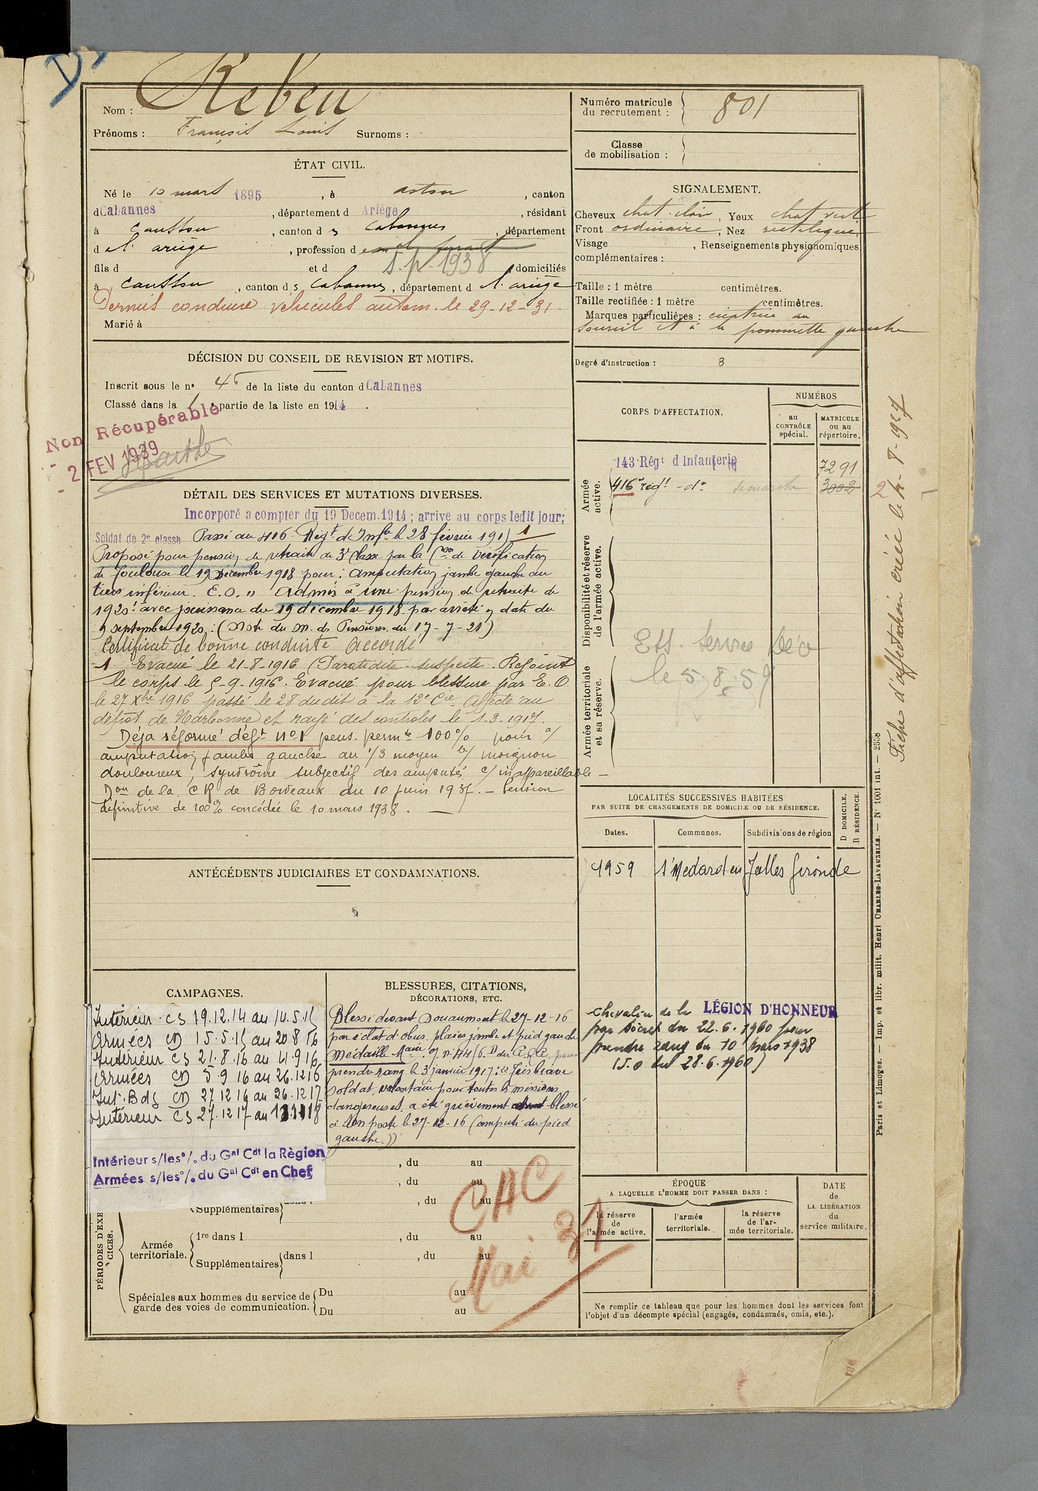 Nom : Rebeu
Prénoms : François Louis Surnoms :
Numéro matricule du recrutement : 801
Classe de mobilisation :
ÉTAT CIVIL.
Né le 10 mars 1895, à Aston, canton
d Cabannes, département d Ariège, résidant
à Caussou, canton ds Cabannes, département
d l'Ariège, profession d
S.P. 1938
fils d et d domiciliés
à Caussou, canton ds Cabannes, département d l'Ariège
Permis conduire véhicules autom. le 29-12-31.
Marié à
SIGNALEMENT.
Cheveux chat. clair, Yeux chat verts
Front ordinaire, Nez rectiligne
Visage , Renseignements physiognomiques
complémentaires :
Taille : 1 mètre centimètres.
Taille rectifiée : 1 mètre centimètres.
Marques particulières : cicatrice au
sourcil et à la pommette gauche
Degré d'instruction : 3
DÉCISION DU CONSEIL DE REVISION ET MOTIFS.
Inscrit sous le n° 45 de la liste du canton d Cabannes
Classé dans la 1 partie de la liste en 1914.
Non Récupérable
- 2 FEV 1939
CORPS D'AFFECTATION.
NUMÉROS
au CONTRÔLE spécial.
MATRICULE ou au répertoire.
Armée active.
143 Régt d'Infanterie 7291
416e régt - do - 3002
Disponibilité et réserve de l'armée active.
Armée territoriale et sa réserve.
le 5.8.59
Fiche d'affectation créée le 4-8-1927
2
DÉTAIL DES SERVICES ET MUTATIONS DIVERSES.
Incorporé a compter du 19 Decem.1914 ; arrive au corps ledit jour;
Soldat de 2e classe Passé au 416 Régt d'Infie le 28 février 1915 1
Proposé pour pension de retraite de 3e classe par la Con de vérification
de Toulouse le 19 Décembre 1918 pour : Amputation jambe gauche au
tiers inférieur. E.O. " Admis à une pension de retraite de
1920f avec jouissance du 19 décembre 1918 par arrêté en date du
9 septembre 1920. (Note du M. de Pensions du 17-7-21)
Certificat de bonne conduite Accordé
1 Evacué le 21-8-1916 (Paratidite suspecte. Rejoint
le corps le 5-9-1916. Evacué pour blessure par E.O
le 27 Xbre 1916 passé le 28 du dit à la 12e Cie. Affecté au
dépôt de Narbonne et rayé des contrôles le 1.3.1917.
Déjà réformé déft n°1 pens. permte 100% pour a/
amputation jambe gauche au 1/3 moyen b/ moignon
douloureux, syndrôme subjectif des amputés c/ inappareillable -
Don de la CR de Bordeaux du 10 juin 1937. - Pension
définitive de 100% concédée le 10 mars 1938. -
LOCALITÉS SUCCESSIVES HABITÉES
PAR SUITE DE CHANGEMENTS DE DOMICILE OU DE RÉSIDENCE.
Dates. Communes. Subdivisions de région
D DOMICILE. R RÉSIDENCE.
1959 St Medard en Jalles Gironde
Chevalier de la LÉGION D'HONNEUR
par décret du 22.6.1960 pour
prendre rang du 10 mars 1938
(J.O du 28.6.1960)
ANTÉCÉDENTS JUDICIAIRES ET CONDAMNATIONS.
CAMPAGNES.
Intérieur CS 19.12.14 au 14.5.15
Armées CD 15.5.15 au 20.8.16
Intérieur CS 21.8.16 au 4.9.16
Armées CD 5.9.16 au 26.12.16
Int. Bds CD 27.12.16 au 26.12.17
Intérieur CS 27.12.17 au
Intérieur s/les°/. du Gal Cdt la Région
Armées s/les°/. du Gal Cdt en Chef
BLESSURES, CITATIONS,
DÉCORATIONS, ETC.
Blessé devant Douaumont le 27-12-16
par éclat d'obus, plaies jambe et pied gauche
Médaille Maire pour
prendre rang le 3 janvier 1917 : "Très brave
soldat, volontaire pour toutes les missions
dangereuses, a été grièvement blessé
à son poste le 27-12-16 (amputé du pied
gauche))
PÉRIODES D'EXERCICES.
, du au
, du au
Supplémentaires , du au
Armée territoriale.
1re dans l , du au
Supplémentaires dans l , du au
Spéciales aux hommes du service de garde des voies de communication.
Du au
Du au
CAC
Mai 31
ÉPOQUE
A LAQUELLE L'HOMME DOIT PASSER DANS :
la réserve de l'armée active.
l'armée territoriale.
la réserve de l'armée territoriale.
DATE de LA LIBÉRATION du service militaire.
Ne remplir ce tableau que pour les hommes dont les services font
l'objet d'un décompte spécial (engagés, condamnés, omis, etc.).
Paris et Limoges. — Imp. et libr. milit. Henri CHARLES-LAVAUZELLE. — N° 1001 int. — 2558